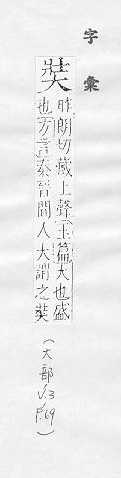 字彙
奘
昨朗切藏上聲玉篇大也盛
也方言秦晉間人大謂之奘
(大部 V.3 P.69)